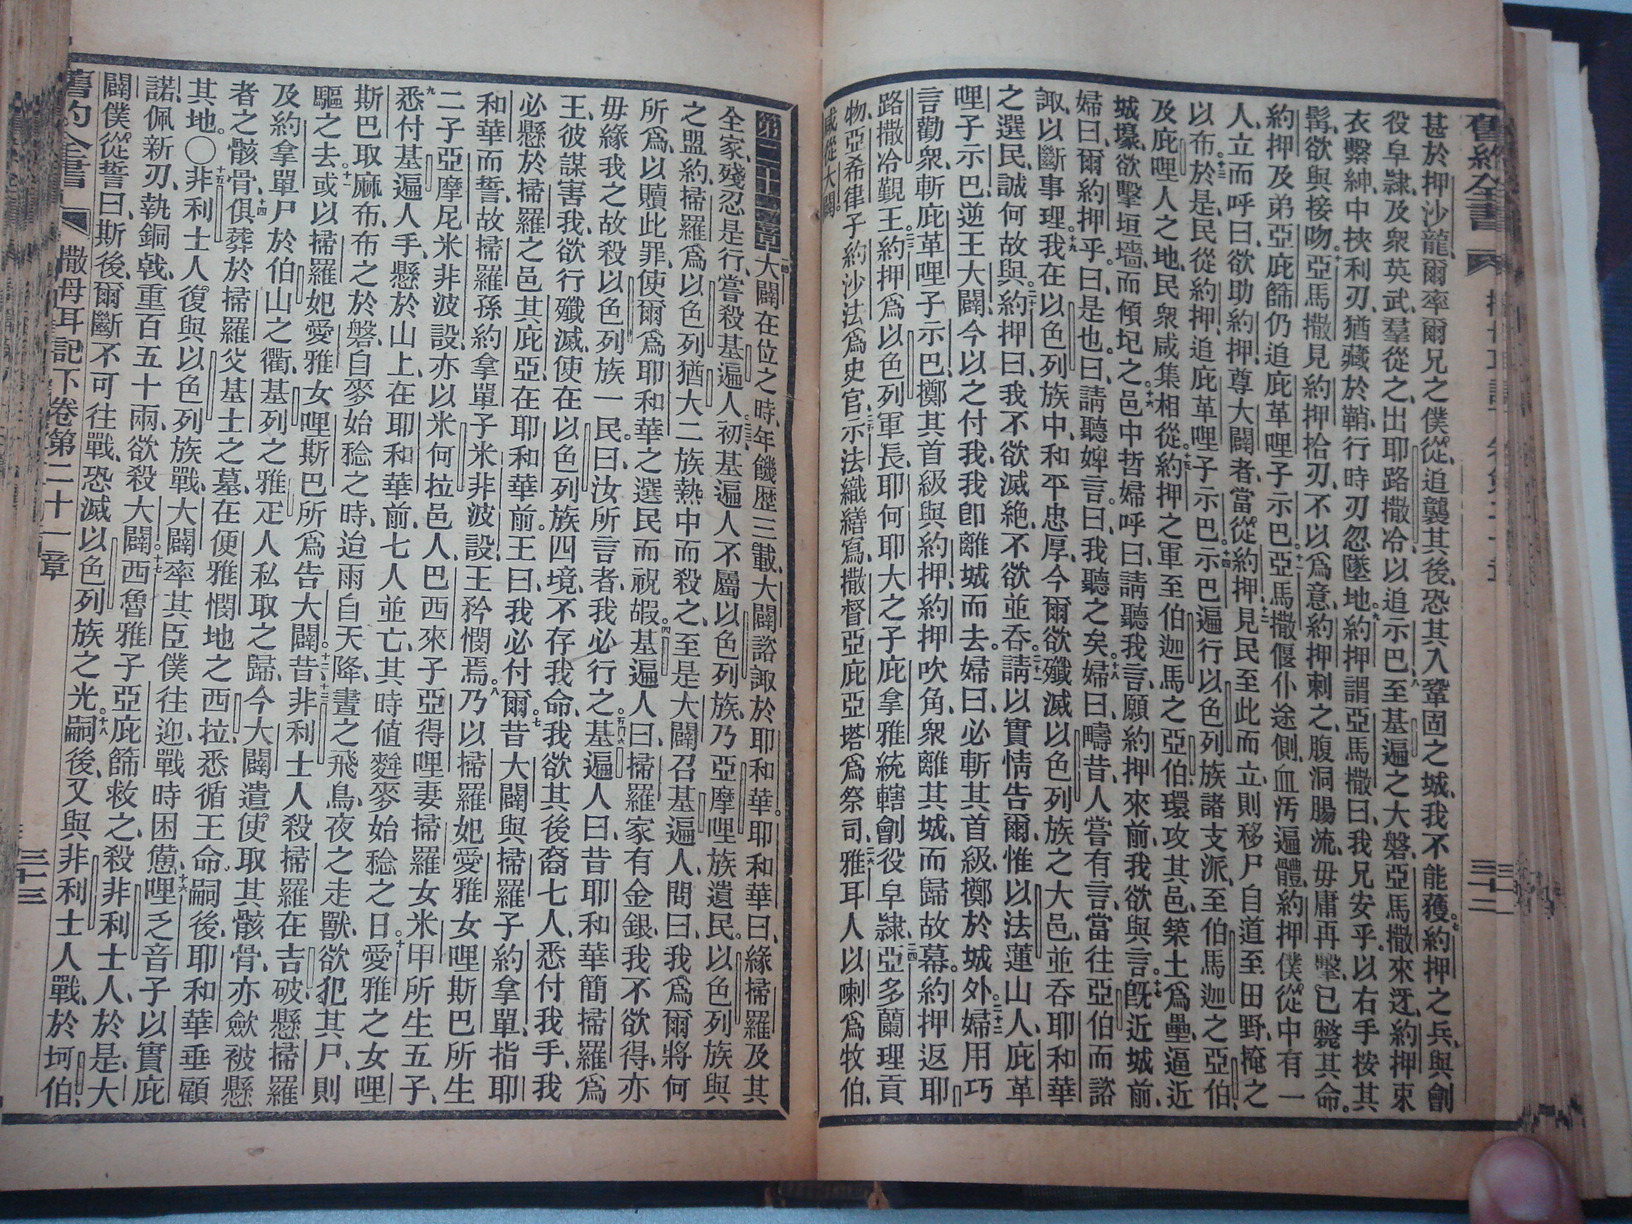 舊約全書
甚於押沙龍爾率爾兄之僕從追襲其後恐其入鞏固之城我不能獲七約押之兵與劊
役皁隸及衆英武羣從之出耶路撒冷以追示巴八至基遍之大磐亞馬撒來迓約押束
衣繫紳中挾利刃猶藏於鞘行時刃忽墜地九約押謂亞馬撒曰我兄安乎以右手按其
髯欲與接吻十亞馬撒見約押拾刃不以爲意約押刺之腹洞腸流毋庸再擊已斃其命
約押及弟亞庇篩仍追庇革哩子示巴十二亞馬撒偃仆途側血沔遍體約押僕從中有一
人立而呼曰欲助約押尊大闢者當從約押十三見民至此而立則移尸自道至田野掩之
以布十三於是民從約押追庇革哩子示巴十四示巴遍行以色列族諸支派至伯馬迦之亞伯
及庇哩人之地民衆咸集相從十五約押之軍至伯迦馬之亞伯環攻其邑築土爲壘逼近
城壕欲擊垣墻而傾圮之十六邑中哲婦呼曰請聽我言願約押來前我欲與言十七旣近城前
婦曰爾約押乎曰是也曰請聽婢言曰我聽之矣十八婦曰疇昔人嘗有言當往亞伯而諮
諏以斷事理十九我在以色列族中和平忠厚今爾欲殲滅以色列族之大邑並吞耶和華
之選民誠何故與二十約押曰我不欲滅絶不欲並吞二十一請以實情告爾惟以法蓮山人庇革
哩子示巴逆王大闢今以之付我我卽離城而去婦曰必斬其首級擲於城外二十二婦用巧
言勸衆斬庇革哩子示巴擲其首級與約押約押吹角衆離其城而歸故幕約押返耶
路撒冷覲王二十三約押爲以色列軍長耶何耶大之子庇拿雅統轄劊役皁隸二十四亞多蘭理貢
物亞希律子約沙法爲史官二十五示法織繕寫撒督亞庇亞塔爲祭司二十六雅耳人以喇爲牧伯
咸從大闢
第二十一章一大闢在位之時年饑歷三載大闢諮諏於耶和華耶和華曰緣掃羅及其
全家殘忍是行嘗殺基遍人二初基遍人不屬以色列族乃亞摩哩族遺民以色列族與
之盟約掃羅爲以色列猶大二族熱中而殺之三至是大闢召基遍人問曰我爲爾將何
所爲以贖此罪使爾爲耶和華之選民而祝嘏四基遍人曰掃羅家有金銀我不欲得亦
毋緣我之故殺以色列族一民曰汝所言者我必行之五六基遍人曰昔耶和華簡掃羅爲
王彼謀害我欲行殲滅使在以色列族四境不存我命我欲其後裔七人悉付我手我
必懸於掃羅之邑其庇亞在耶和華前王曰我必付爾七昔大闢與掃羅子約拿單指耶
和華而誓故掃羅孫約拿單子米非波設王矜憫焉八乃以掃羅妃愛雅女哩斯巴所生
二子亞摩尼米非波設亦以米何拉邑人巴西來子亞得哩妻掃羅女米甲所生五子
九悉付基遍人手懸於山上在耶和華前七人並亡其時値麰麥始稔之日十愛雅之女哩
斯巴取麻布布之於磐自麥始稔之時迨雨自天降晝之飛鳥夜之走獸欲犯其尸則
驅之去十一或以掃羅妃愛雅女哩斯巴所爲告大闢十二十三昔非利士人殺掃羅在吉破懸掃羅
及約拿單尸於伯山之衢基列之雅疋人私取之歸今大闢遣使取其骸骨亦歛被懸
者之骸骨十四俱葬於掃羅父基士之墓在便雅憫地之西拉悉循王命嗣後耶和華垂顧
其地〇十五非利士人復與以色列族戰大闢率其臣僕往迎戰時困憊十六哩乏音子以實庇
諾佩新刃執銅戟重百五十兩欲殺大闢十七西魯雅子亞庇篩救之殺非利士人於是大
闢僕從誓曰斯後爾斷不可往戰恐滅以色列族之光十八嗣後又與非利士人戰於坷伯
舊約全書 撒母耳記下卷第二十一章 三百三十三